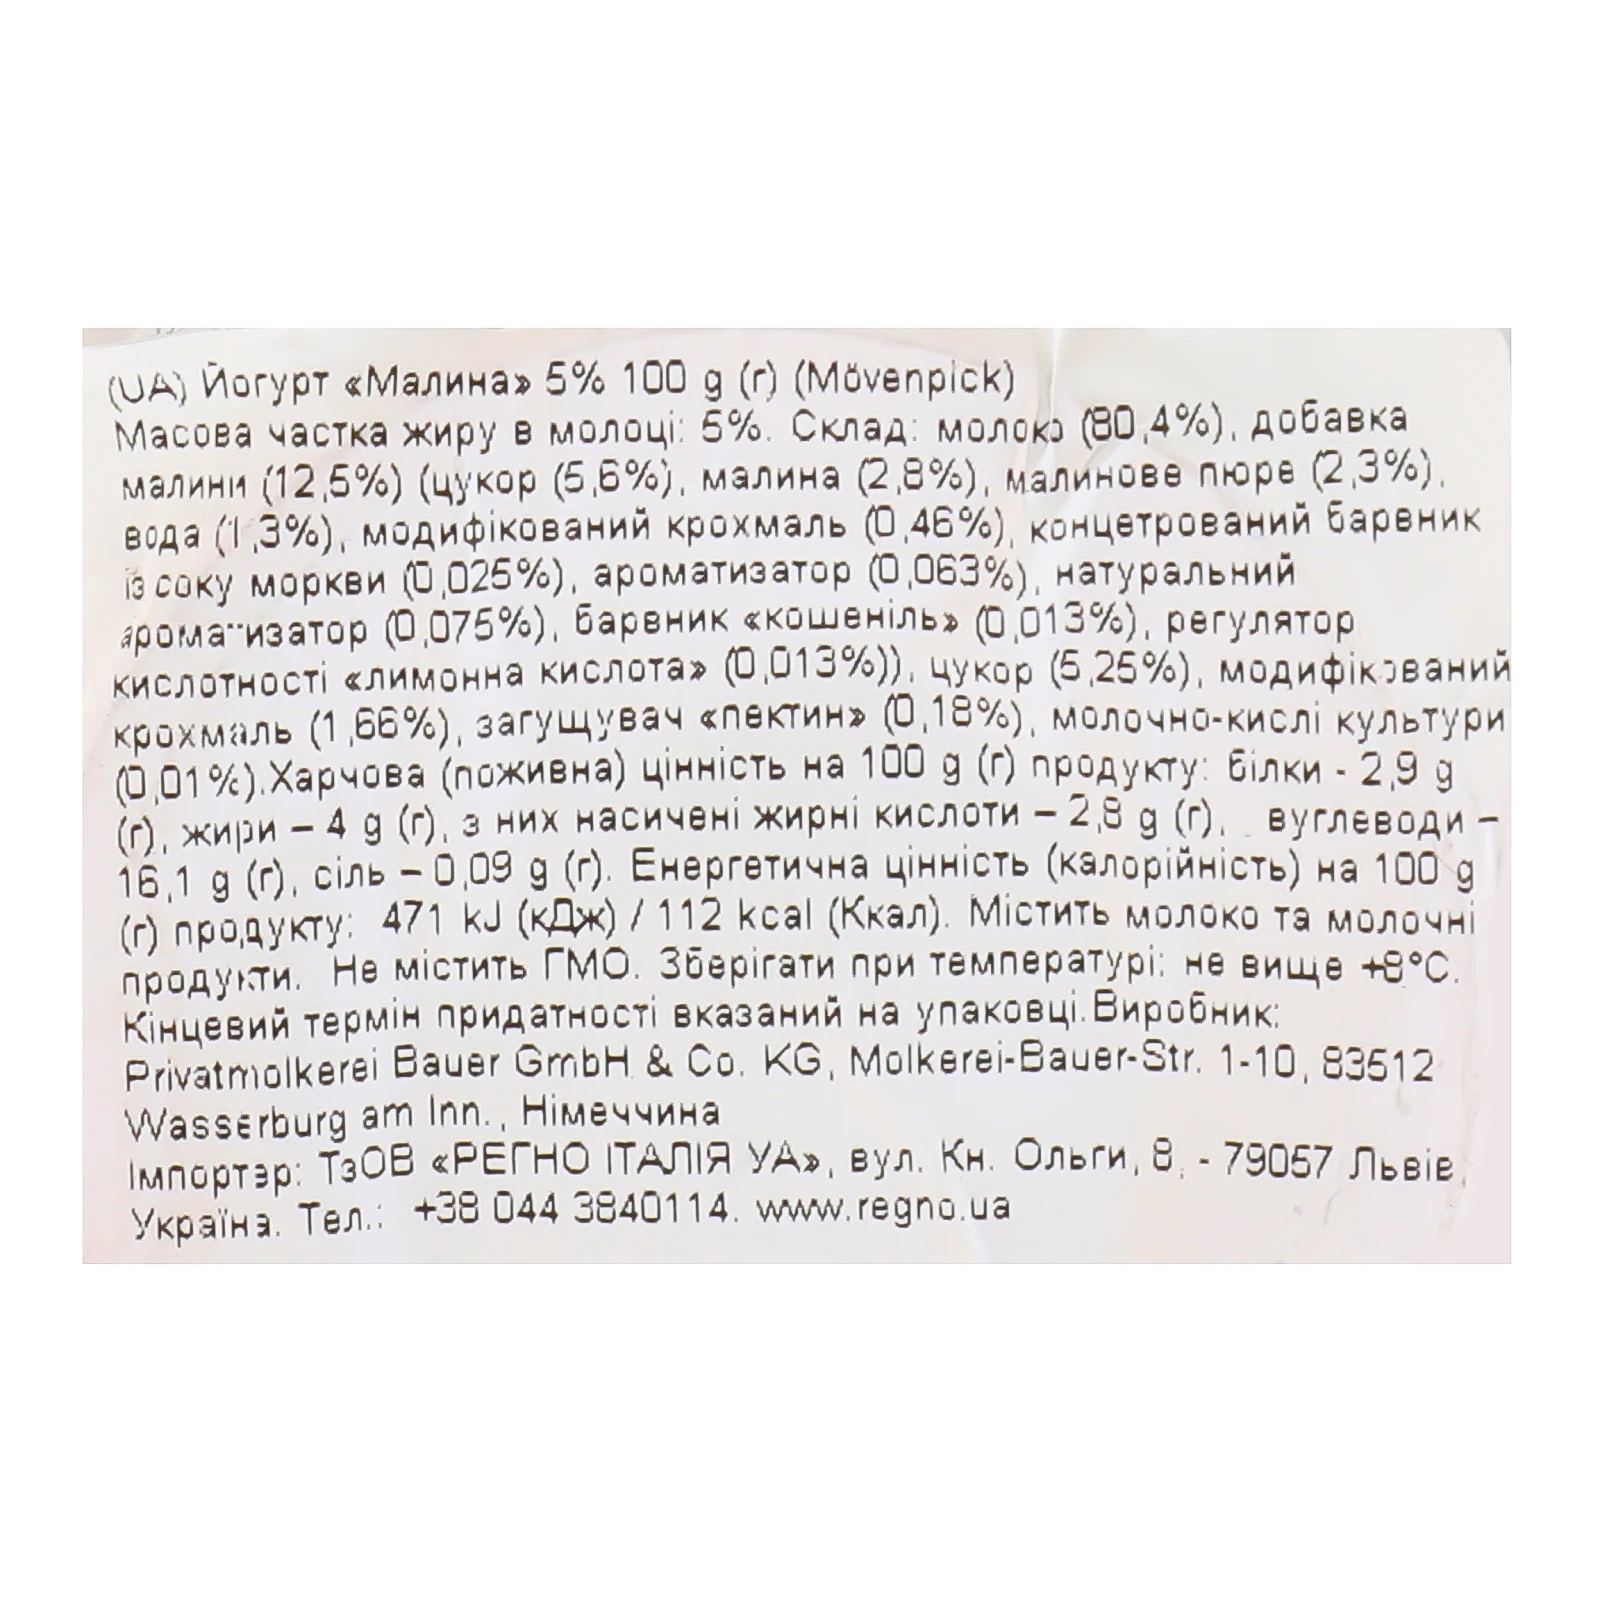 (UA) Йогурт «Малина» 5% 100 g (г) (Mövenpick)
Масова частка жиру в молоці: 5%. Склад: молоко (80,4%), добавка
малини (12,5%) (цукор (5,6%), малина (2,8%), малинове пюре (2,3%),
вода (1,3%), модифікований крохмаль (0,46%), концетрований барвник
із соку моркви (0,025%), ароматизатор (0,063%), натуральний
ароматизатор (0,075%), барвник «кошеніль» (0,013%), регулятор
кислотності «лимонна кислота» (0,013%)), цукор (5,25%), модифікований
крохмаль (1,66%), загущувач «пектин» (0,18%), молочно-кислі культури
(0,01%).Харчова (поживна) цінність на 100 g (г) продукту: білки - 2,9 g
(г), жири – 4 g (г), з них насичені жирні кислоти – 2,8 g (г), вуглеводи –
16,1 g (г), сіль – 0,09 g (г). Енергетична цінність (калорійність) на 100 g
(г) продукту: 471 kJ (кДж) / 112 kcal (Ккал). Містить молоко та молочні
продукти. Не містить ГМО. Зберігати при температурі: не вище +8°C.
Кінцевий термін придатності вказаний на упаковці.Виробник:
Privatmolkerei Bauer GmbH & Co. KG, Molkerei-Bauer-Str. 1-10, 83512
Wasserburg am Inn., Німеччина
Імпортэр: ТзОВ «РЕГНО ІТАЛІЯ УА», вул. Кн. Ольги, 8, - 79057 Львів,
Україна. Тел.: +38 044 3840114. www.regno.ua